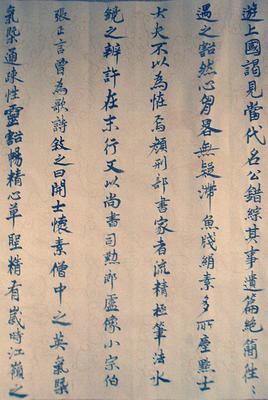 遊上國謁見當代名公錯綜其事遺篇絕簡往〻
遇之豁然心胷畧無疑滯魚牋絹素多所塵點士
大夫不以為恠焉顏刑部書家者流精極筆法水
鏡之辨許在末行又以尚書司勳郎盧像小宗伯
張正言曾為歌詩敘之曰開士懷素僧中之英氣槩
氣槩通疎性靈豁暢精心草聖積有歲時江嶺之